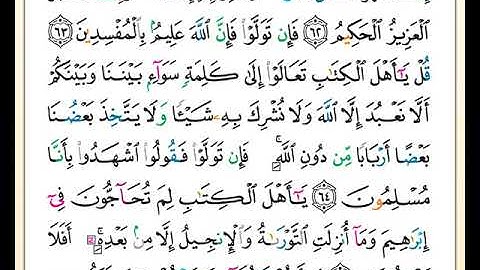 ٱلْعَزِيزُ ٱلْحَكِيمُ ٦٢ فَإِن تَوَلَّوْا۟ فَإِنَّ ٱللَّهَ عَلِيمٌۢ بِٱلْمُفْسِدِينَ ٦٣
قُلْ يَٰٓأَهْلَ ٱلْكِتَٰبِ تَعَالَوْا۟ إِلَىٰ كَلِمَةٍ سَوَآءٍۭ بَيْنَنَا وَبَيْنَكُمْ
أَلَّا نَعْبُدَ إِلَّا ٱللَّهَ وَلَا نُشْرِكَ بِهِۦ شَيْـًٔا وَلَا يَتَّخِذَ بَعْضُنَا
بَعْضًا أَرْبَابًا مِّن دُونِ ٱللَّهِ ۚ فَإِن تَوَلَّوْا۟ فَقُولُوا۟ ٱشْهَدُوا۟ بِأَنَّا
مُسْلِمُونَ ٦٤ يَٰٓأَهْلَ ٱلْكِتَٰبِ لِمَ تُحَآجُّونَ فِىٓ
إِبْرَٰهِيمَ وَمَآ أُنزِلَتِ ٱلتَّوْرَىٰةُ وَٱلْإِنجِيلُ إِلَّا مِنۢ بَعْدِهِۦٓ ۚ أَفَلَا